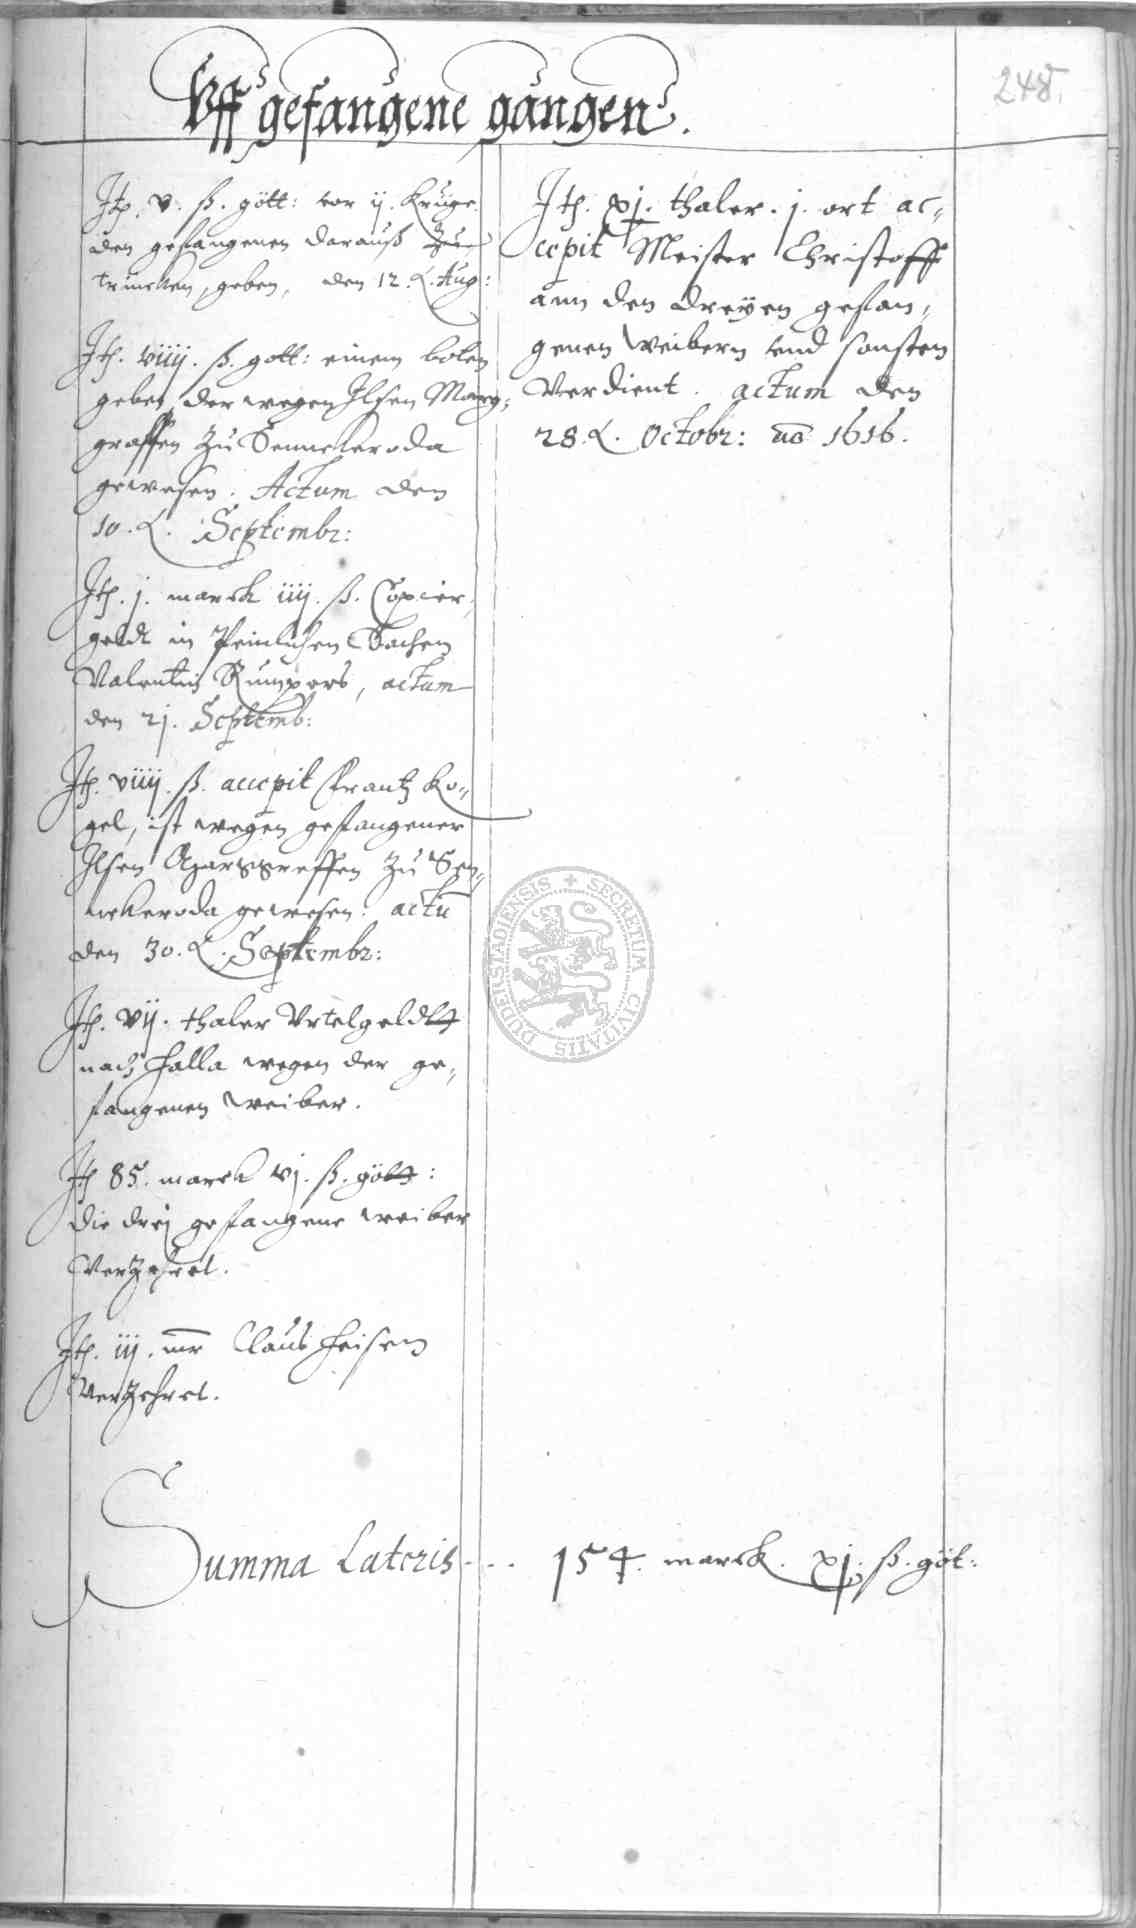 248.
Vff gefangene gangen.
Itp. v. ß. gött: vor ij. Krüge
den gefangenen darauß zu
trincken, geben, den 12. Aug:
Itp. viiij. ß. gott: einem boten
geben, der wegen Ilsen Marg,
graffen zu Sennekeroda
gewesen. Actum den
10. Septembr:
Itp. j. marck iiij. ß. Copier,
geldt in Peinlichen Sachen
Valentin Rumpers, actum
den 2j. Septemb:
Itp. viiij. ß. accepit Frantz Ko,,
gel, ist wegen gefangener
Ilsen Marggreffen zu Sen,,
nekeroda gewesen. actu
den 30. Septembr:
Itp. vij. thaler Vrtelgeldt
nach Halla wegen der ge,,
fangenen weiber.
Itp 85. marck vj. ß. gött:
die drej gefangene weiber
Verzehret.
Itp. iij. mr Claus Heisen
Verzehret.
Itp. xj. thaler. j. ort ac,,
cepit Meister Christoff
ann den dreyen gefan,,
genen Weibern vnd sonsten
Verdient. actum den
28. Octobr: ao 1616.
Summa Lateris - - - 154. marck. xj. ß. göt:
SECRETUM CIVITATIS DUDERSTADIENSIS